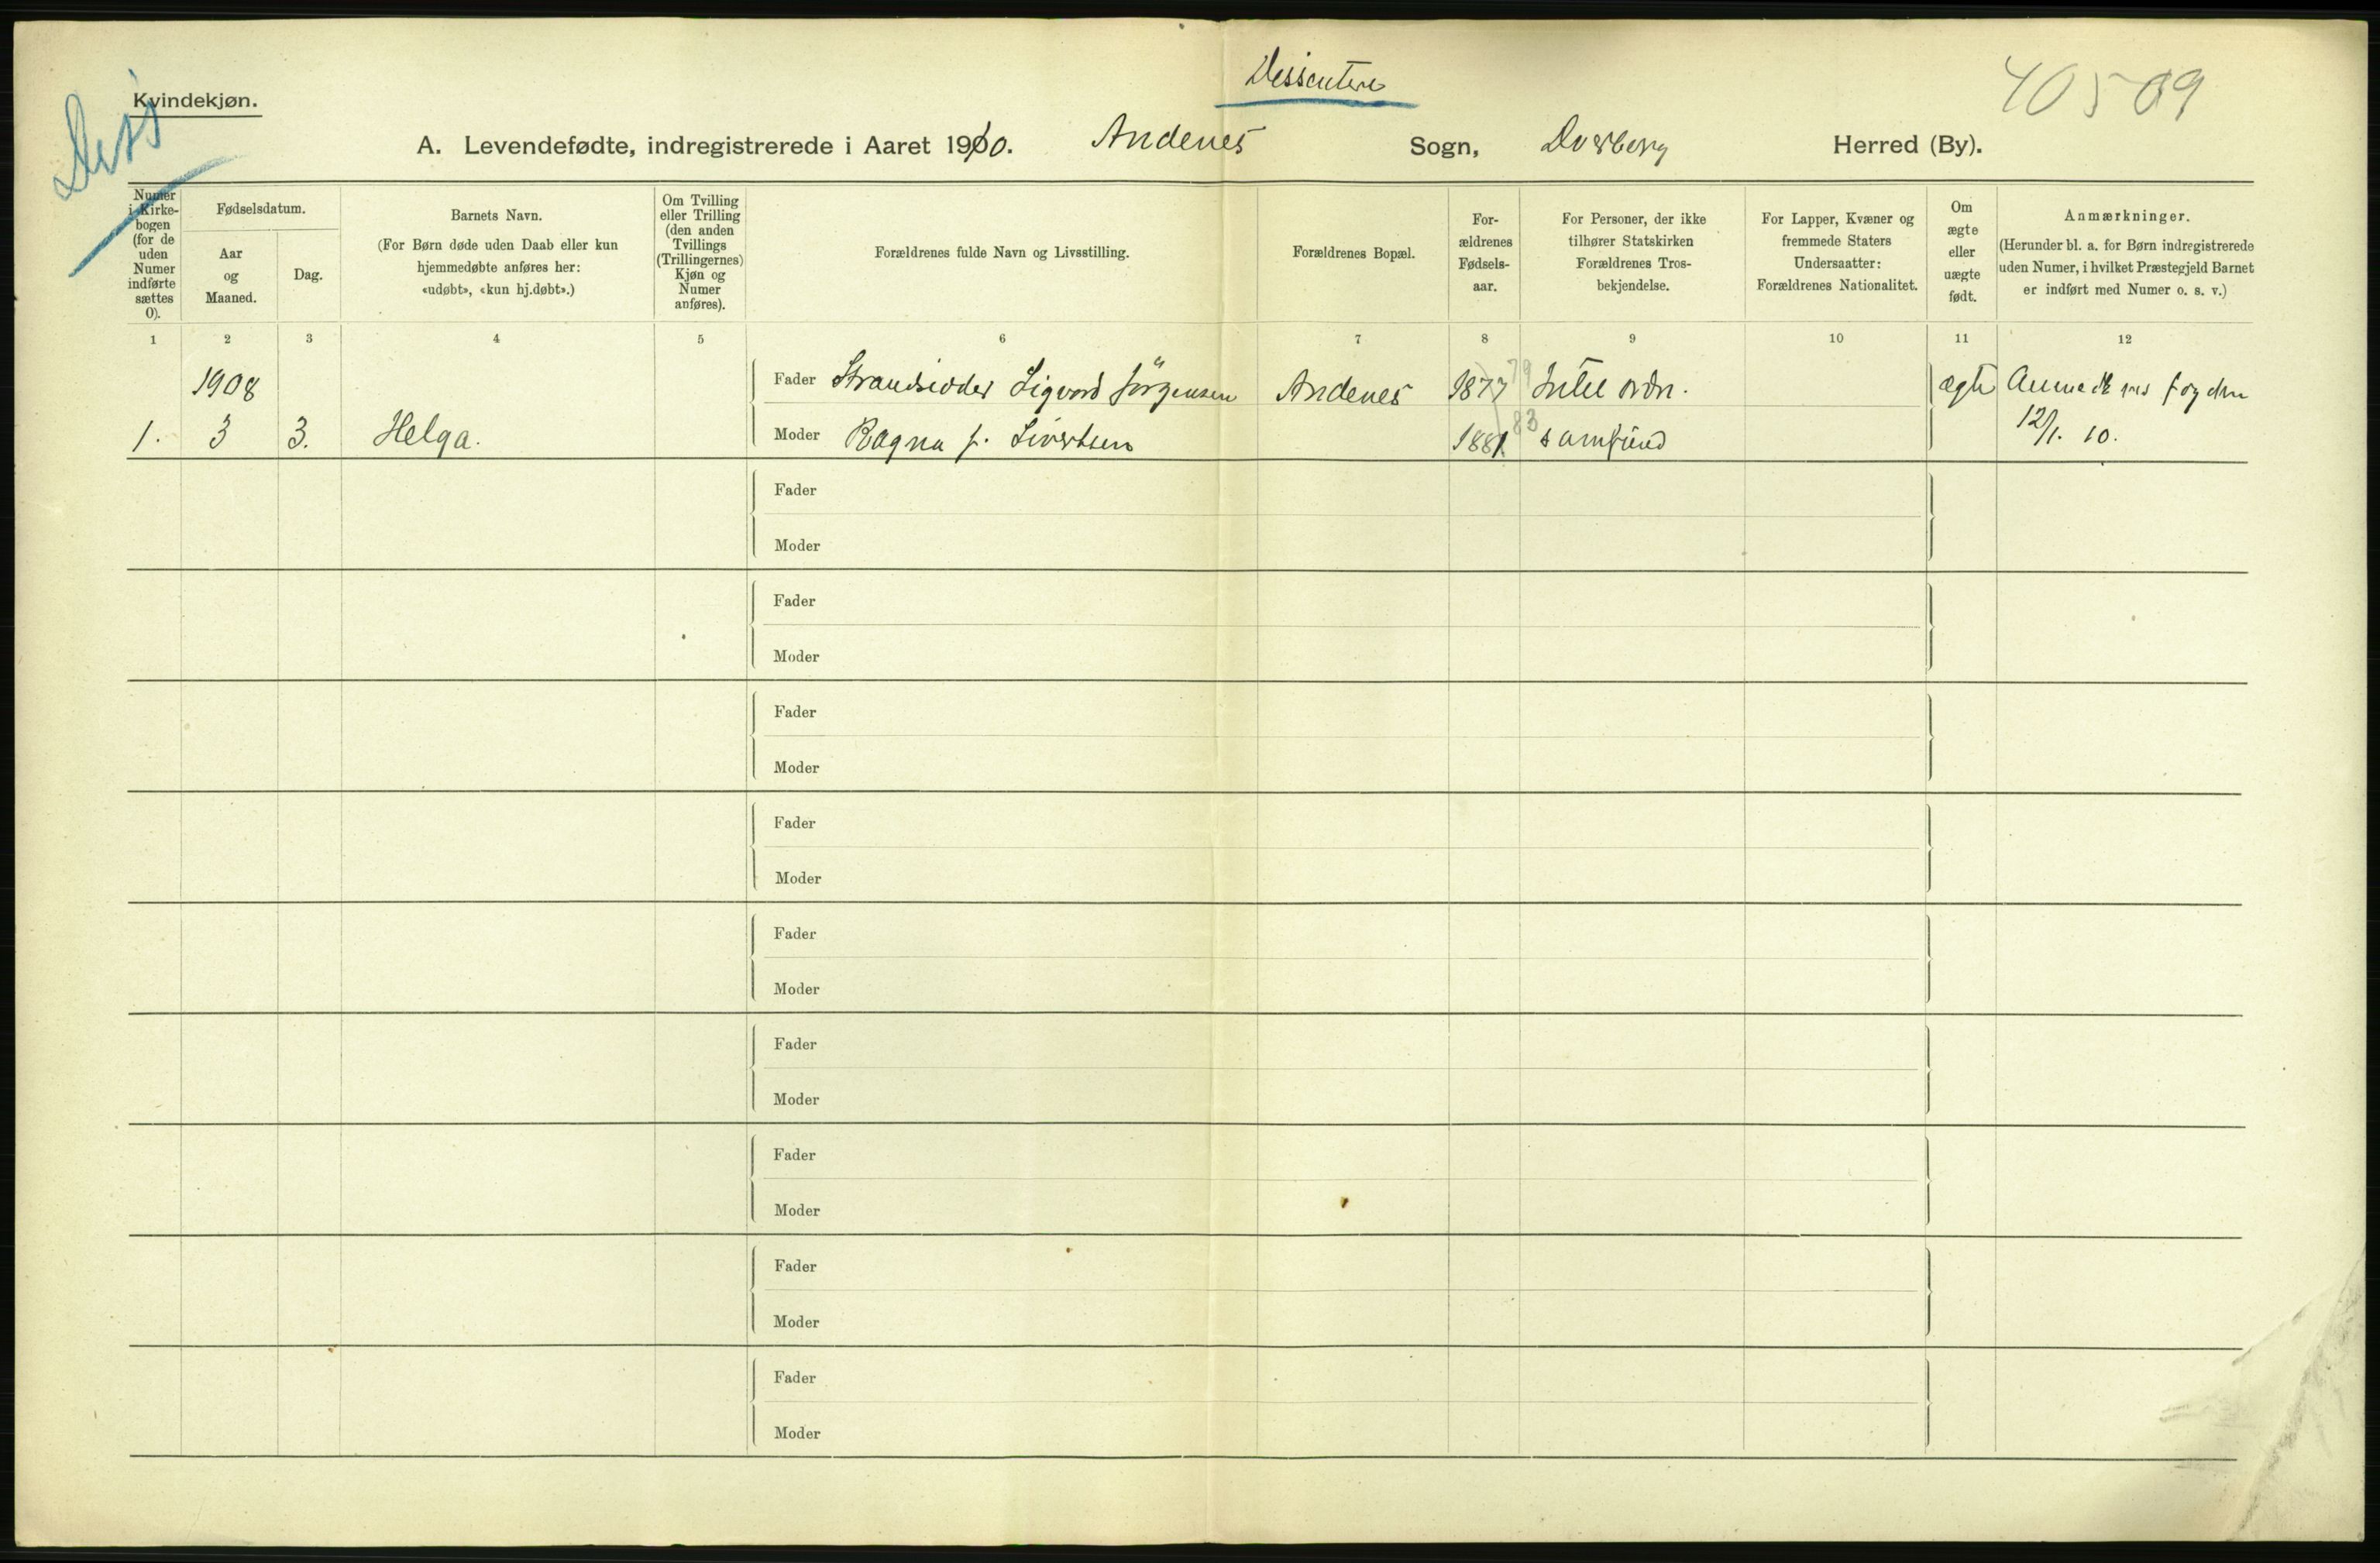 Dissentere
40509
Diss
Kvindekjøn.
A. Levendefødte, indregistrerede i Aaret 1910. Andenes Sogn, Dverberg Herred (By).
Numer i Kirke-bogen (for de uden Numer indførte sættes 0).
Fødselsdatum.
Aar og Maaned.
Dag.
Barnets Navn.
(For Børn døde uden Daab eller kun
hjemmedøbte anføres her:
«udøbt», «kun hj.døbt».)
Om Tvilling
eller Trilling
(den anden
Tvillings
(Trillingernes)
Kjøn og
Numer
anføres).
Forældrenes fulde Navn og Livsstilling.
Forældrenes Bopæl.
For-
ældrenes
Fødsels-
aar.
For Personer, der ikke
tilhører Statskirken
Forældrenes Tros-
bekjendelse.
For Lapper, Kvæner og
fremmede Staters
Undersaatter:
Forældrenes Nationalitet.
Om
ægte
eller
uægte
født.
Anmærkninger.
(Herunder bl. a. for Børn indregistrerede
uden Numer, i hvilket Præstegjeld Barnet
er indført med Numer o. s. v.)
1 2 3 4 5 6 7 8 9 10 11 12
1908 Fader Strandsidder Sigvard Jörgensen Andenes 1877 79 Intet ordn. ægte
1. 3 3. Helga. Moder Ragna f. Sivertsen 1881 83 samfund 12/1. 10.
Fader
Moder
Fader
Moder
Fader
Moder
Fader
Moder
Fader
Moder
Fader
Moder
Fader
Moder
Fader
Moder
Fader
Moder